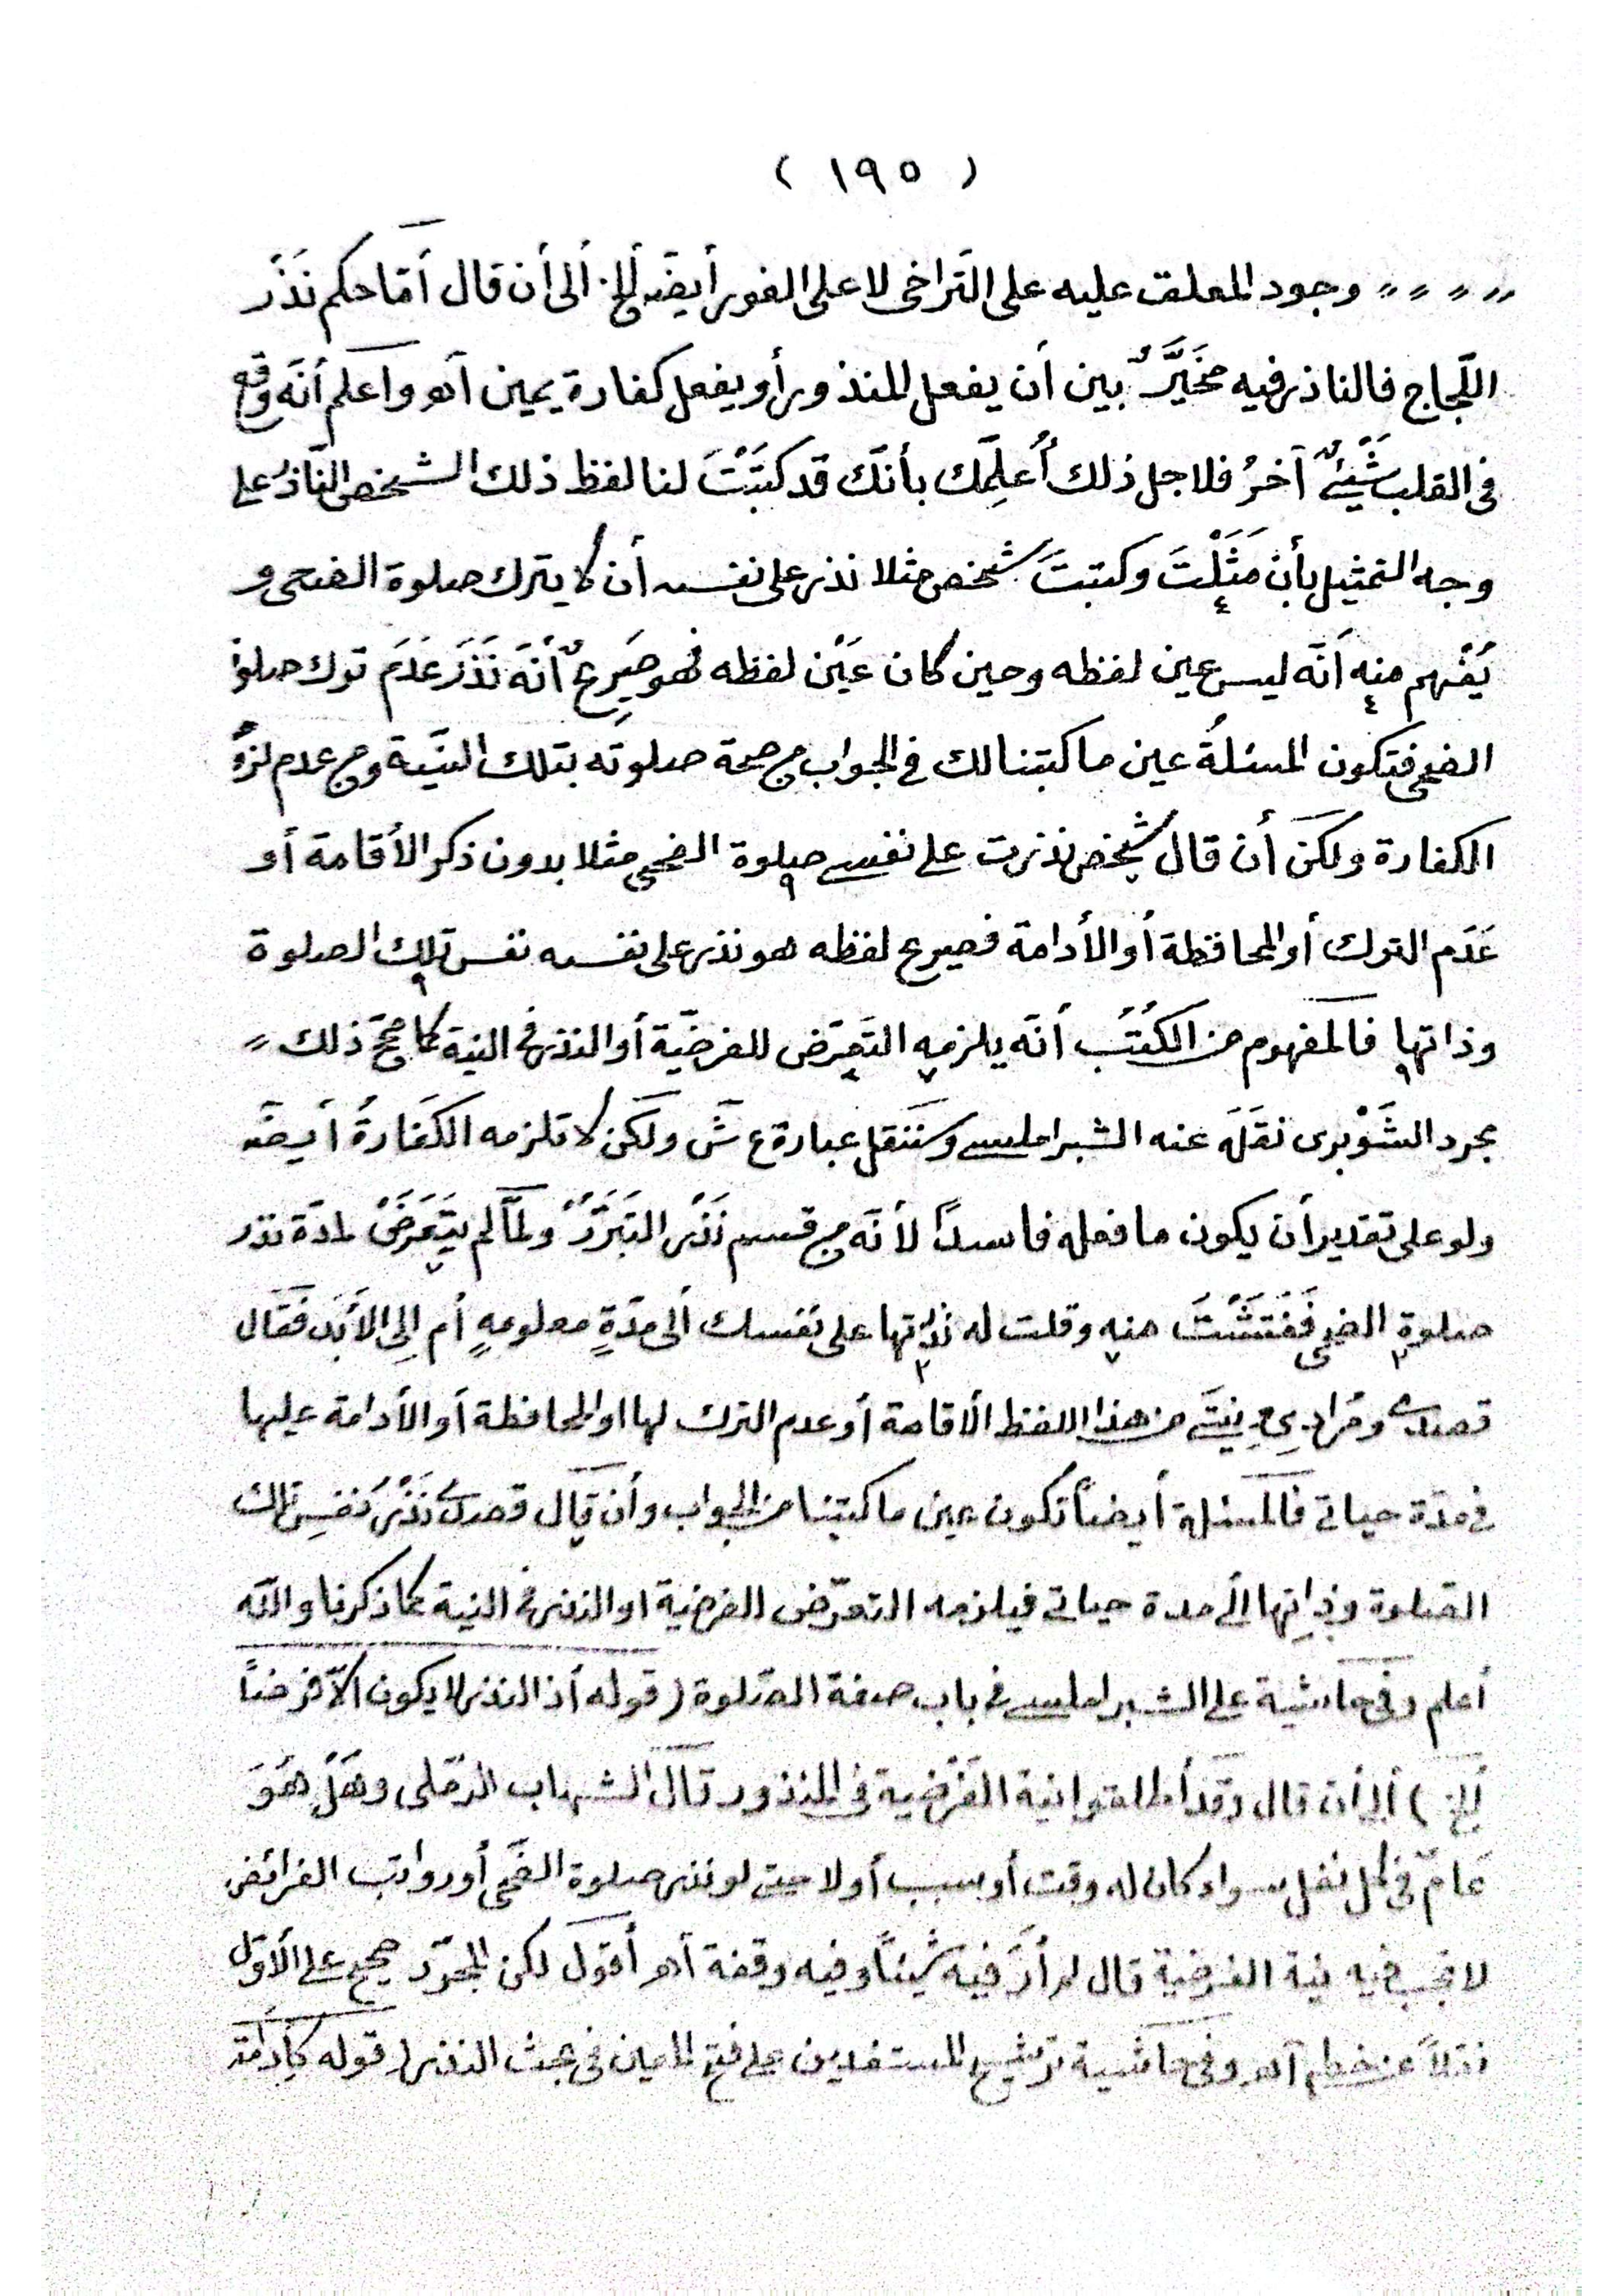 ( ١٩٥ )
〃 〃 〃 〃 وجود المعلق عليه على التراخى لا على الفور أيضًا ألخ ألى أن قال أمّا حكم نَذْر
اللّجاج فالناذر فيه مخَيَّرٌ بين أن يفعل المنذور أو يفعل كفارة يمين آهـ واعلم أنّه وقع
فى القلب شَيْئٌ آخرُ فلاجل ذلك أُعلِمُك بأنّك قد كتَبْتَ لنا لفظ ذلك الشخص النّاذر على
وجه التمثيل بأن مَثَلْتَ وكتبتَ شخص مثلا نذر على نفسه أن لا يترك صلوة الضحى و
يُفْهم منه انّه ليس عين لفظه وحين كان عَيْن لفظه فهو صَرِيحٌ أنّه نَذَرَ عَدَمَ ترك صلوة
الضحى فتكون المسئلةُ عين ما كتبنا لك فى الجواب من صحة صلوته بتلك النيّة ومن عدم لزوم
الكفارة ولكن أن قال شخص نذرت على نفسى صلوة الضحى مثلا بدون ذكر الأقامة أو
عَدَم الترك أو المحافظة أو الأدامة فصريح لفظه هو نذر على نفسه نفس تلك الصلوة
وذاتها فالمفهوم من الكُتُب أنّه يلزمه التعرّض للفرضيّة أو النذر فى النية كما صحّح ذلك 〃
مجرد الشَوْبرى نقَلَه عنه الشبراملسى وسننقل عبارة ع ش ولكن لا تلزمه الكفارةُ أيضًا
ولو على تقدير أن يكون ما فعله فاسدًا لأنّه من قسم نَذْر التبَرُّر ولمّا لم يتَعرّضْ لمدّة نذر
صلوة الضحى فَفَتَشْتَ منه وقلت له نذرتها على نفسك ألى مدّةٍ معلومةٍ أم إلى الأبَد فقال
قصدى ومُرادى ونيتى من هذا اللفظ الأقامة أو عدم الترك لها او المحافظة أو الأدامة عليها
فى مدّة حياتى فالمسئلة أيضًا تكون عين ما كتبنا من الجواب وأن قال قصدى نَذْرُ نفسِ تلك
الصّلوة وذاتِها ألى مدة حياتى فيلزمه التعرّض للفرضية او النذر فى النية كما ذكرنا والله
أعلم وفى حاشية على الشبراملسى فى باب صفة الصّلوة (قوله أذ النذر لا يكون ألاّ فرضًا
ألخ) ألى أن قال وقد أطلقوا نية الفَرْضية فى المنذور قال الشهاب الرّملى وهَلْ هُوَ
عَامّ فى كل نفل سواء كان له وقت أو سبب أو لا حتى لو نذر صلوة الضّحى أو رواتب الفرائض
لا تجب فيه نية الفرضية قال لم أرَ فيه شيئًا وفيه وقفة أهـ أقول لكن المجرّد صحح على الأوّل
نقلاً عن خطه آهـ وفى حاشية ترشيح المستفدين على فتح المعين فى بحث النذر (قوله كأدامة